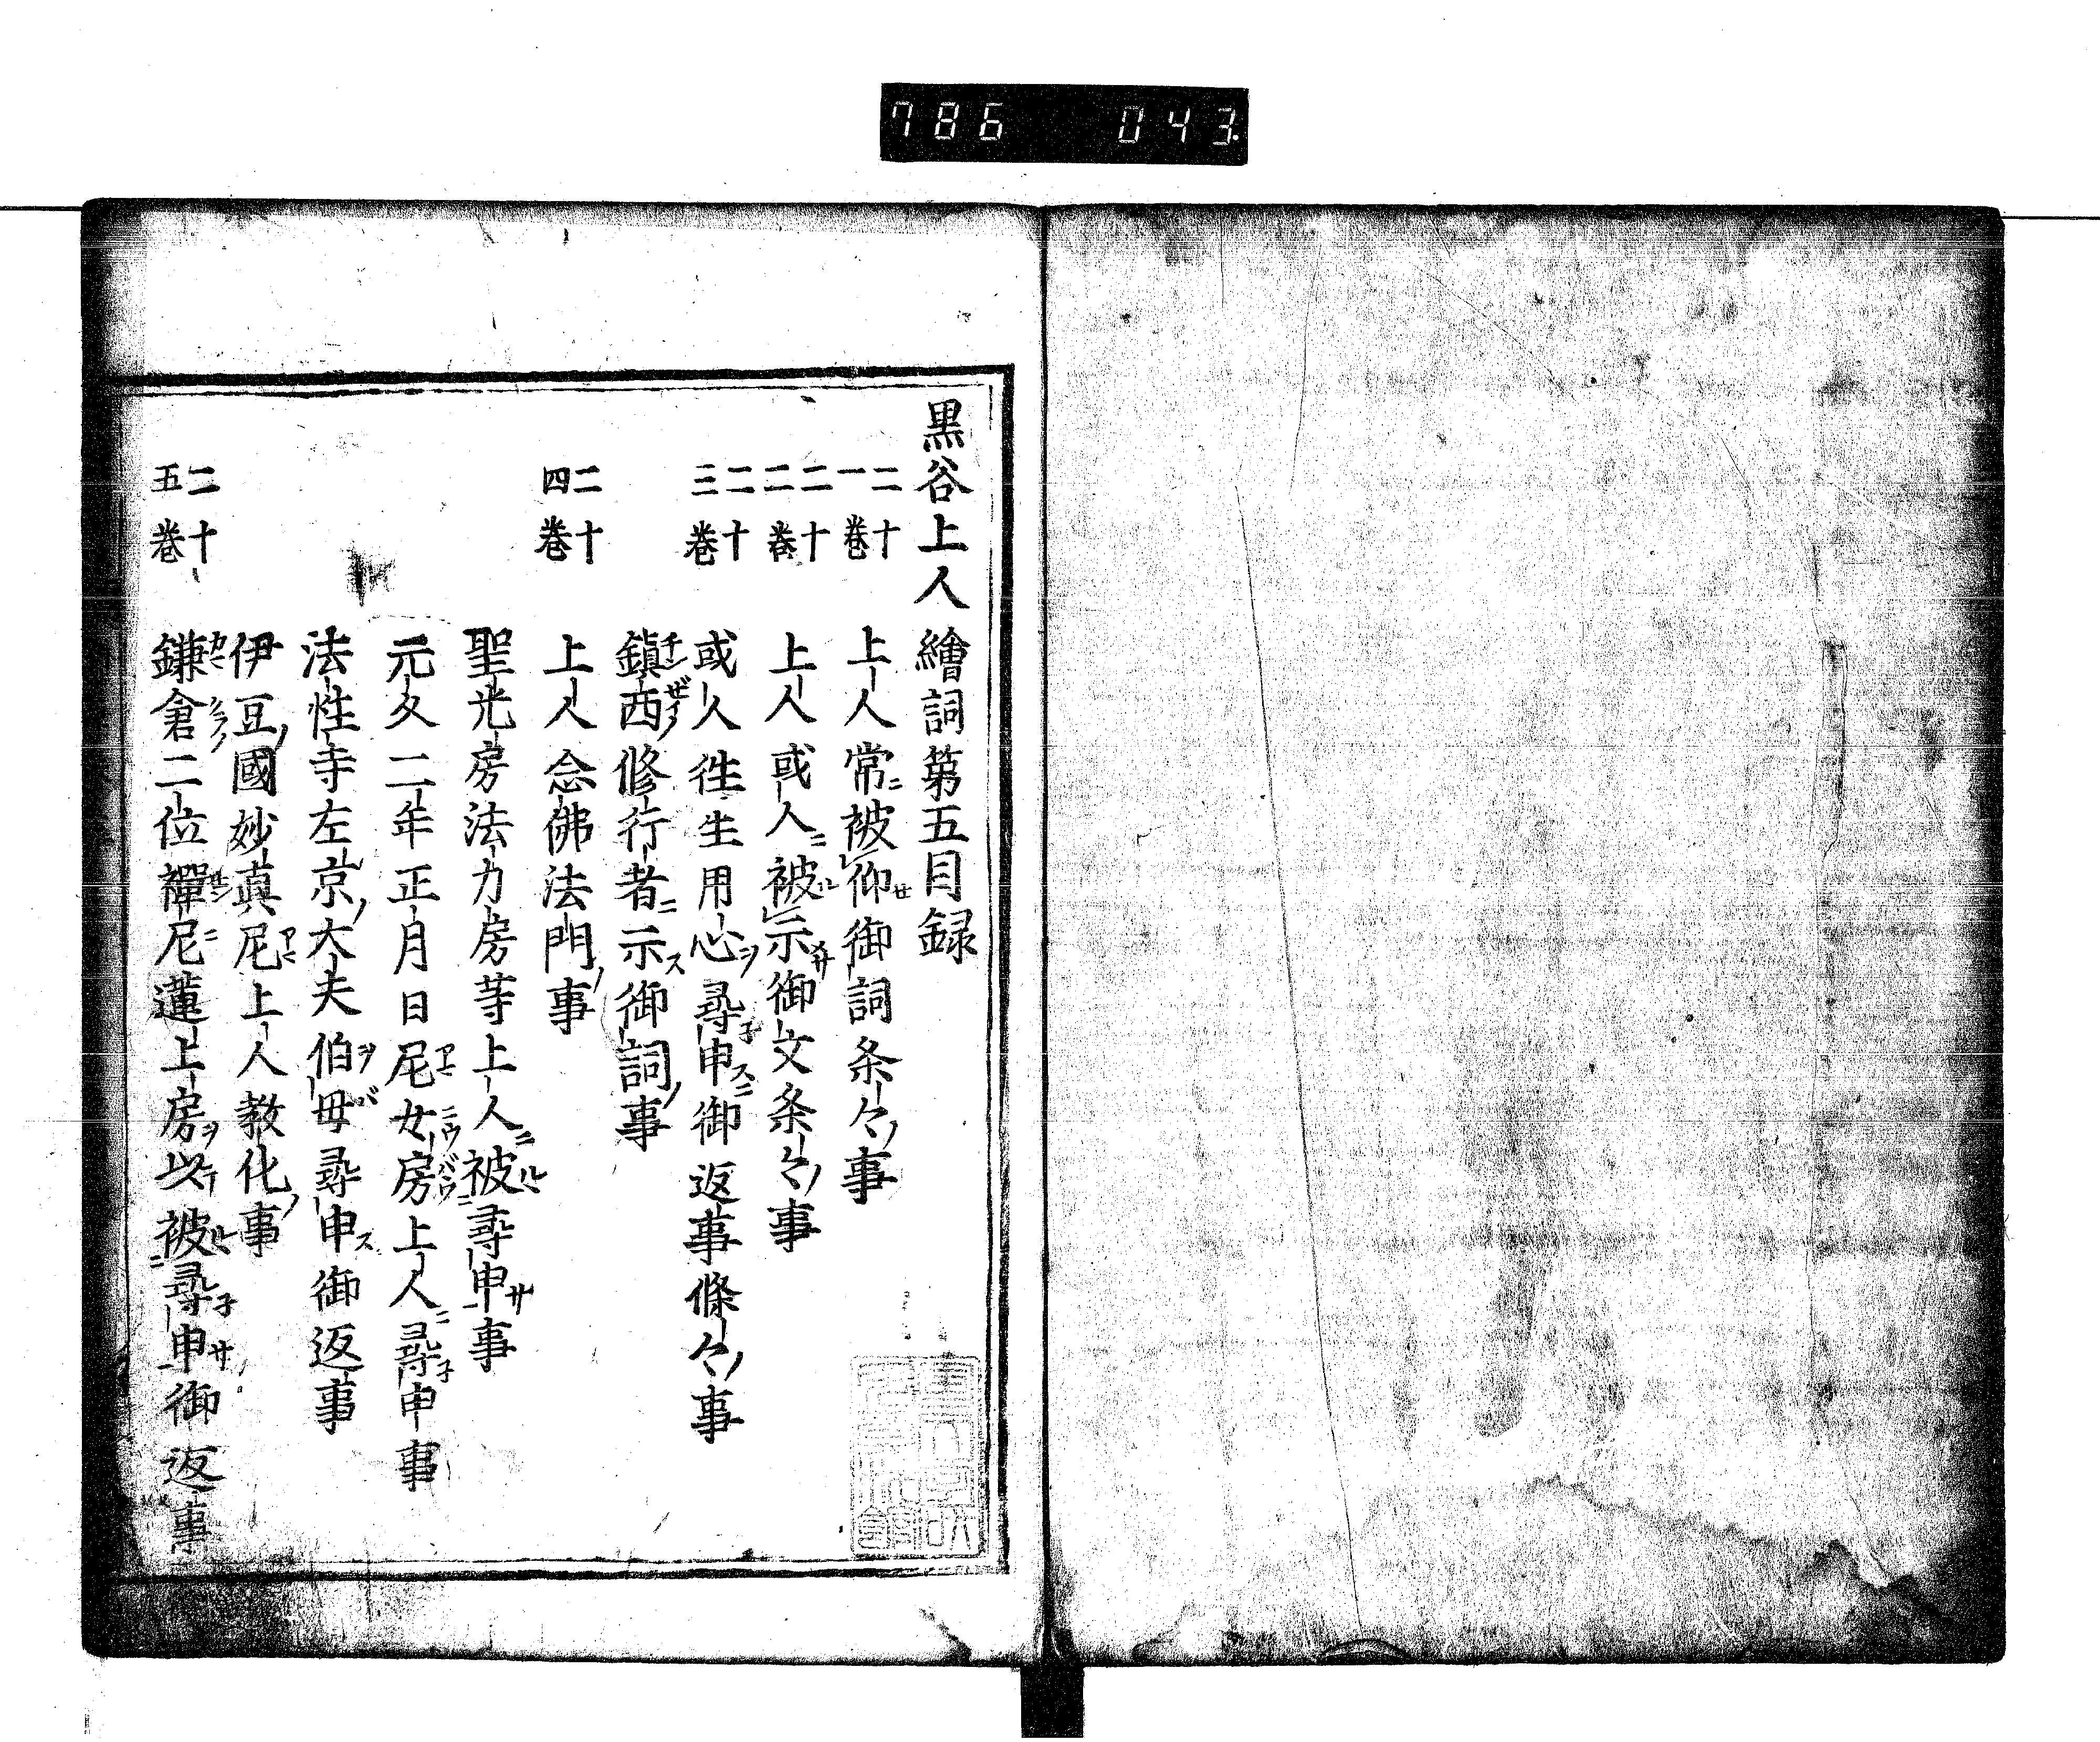 786 043.
黒谷上人繪詞第五目録
二十一巻 上人常被仰御詞条々事
二十二巻 上人或人被示御文条々事
二十三巻 或人徃生用心尋申御返事條々事
鎭西修行者示御詞事
二十四巻 上人念佛法門事
聖光房法力房等上人被尋申事
元久二年正月日尼女房上人尋申事
法性寺左京大夫伯母尋申御返事
伊豆國妙真尼上人教化事
二十五巻 鎌倉二位禪尼蓮上房以被尋申御返事